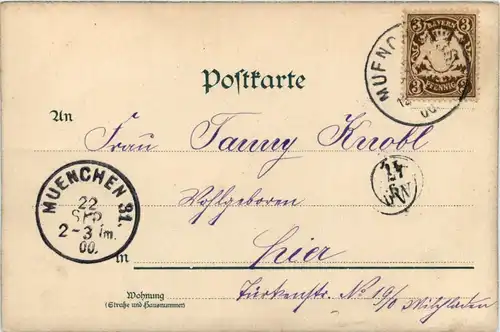 3 BAYERN 3
PFENNIG
MUENC
00.
Postkarte
An
Frau Fanny Knobl
MUENCHEN 31.
22
SEP.
2-3 Nm.
00.
Wohlgeboren
in hier
Wohnung
(Straße und Hausnummer)
Türkenstr. No 19/0 Milchladen